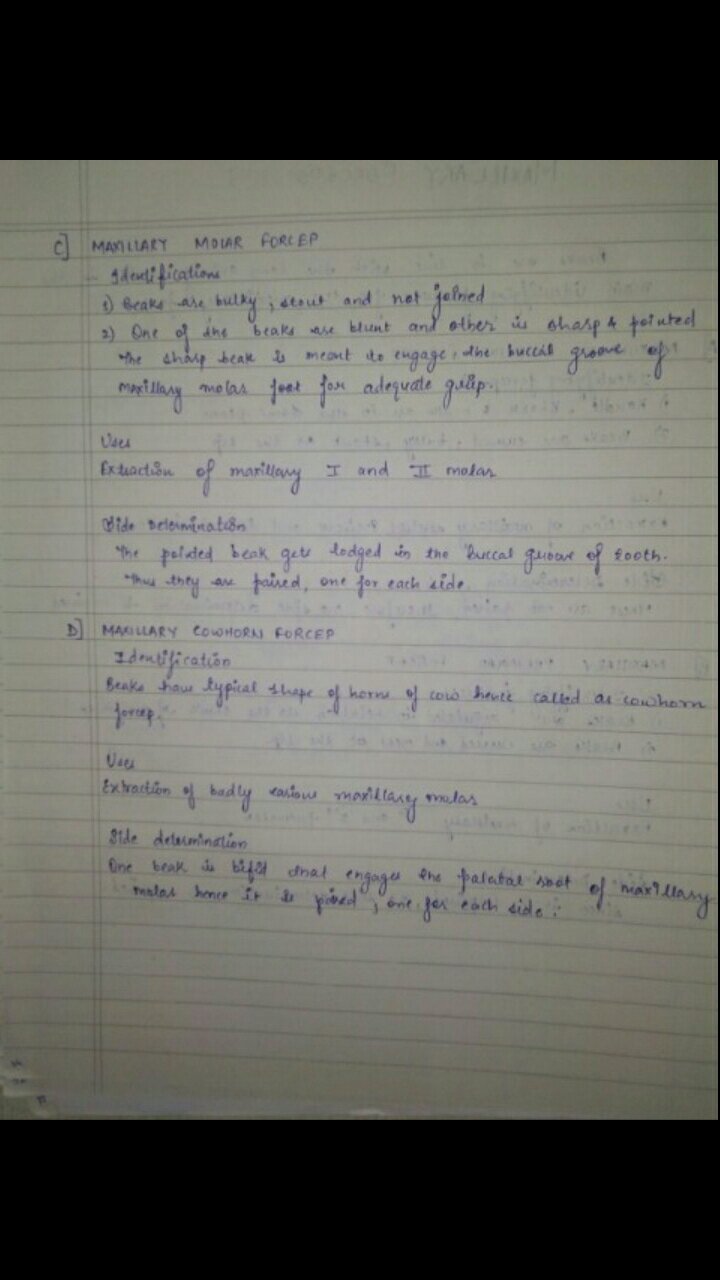 C] MAXILLARY MOLAR FORCEP
Identifications
1) Beaks are bulky, stout and not joined
2) One of the beaks are blunt and other is sharp & pointed
The sharp beak is meant to engage the buccal groove of
maxillary molar for adequate grip.
Uses
Extraction of maxillary I and II molar
Side Determination
The pointed beak gets lodged in the buccal groove of tooth.
Thus they are paired, one for each side.
D] MAXILLARY COWHORN FORCEP
Identification
Beaks have typical shape of horns of cow hence called as cowhorn
forcep.
Uses
Extraction of badly carious maxillary molar
Side determination
One beak is bifid that engages the palatal root of maxillary
molar hence it is paired, one for each side.